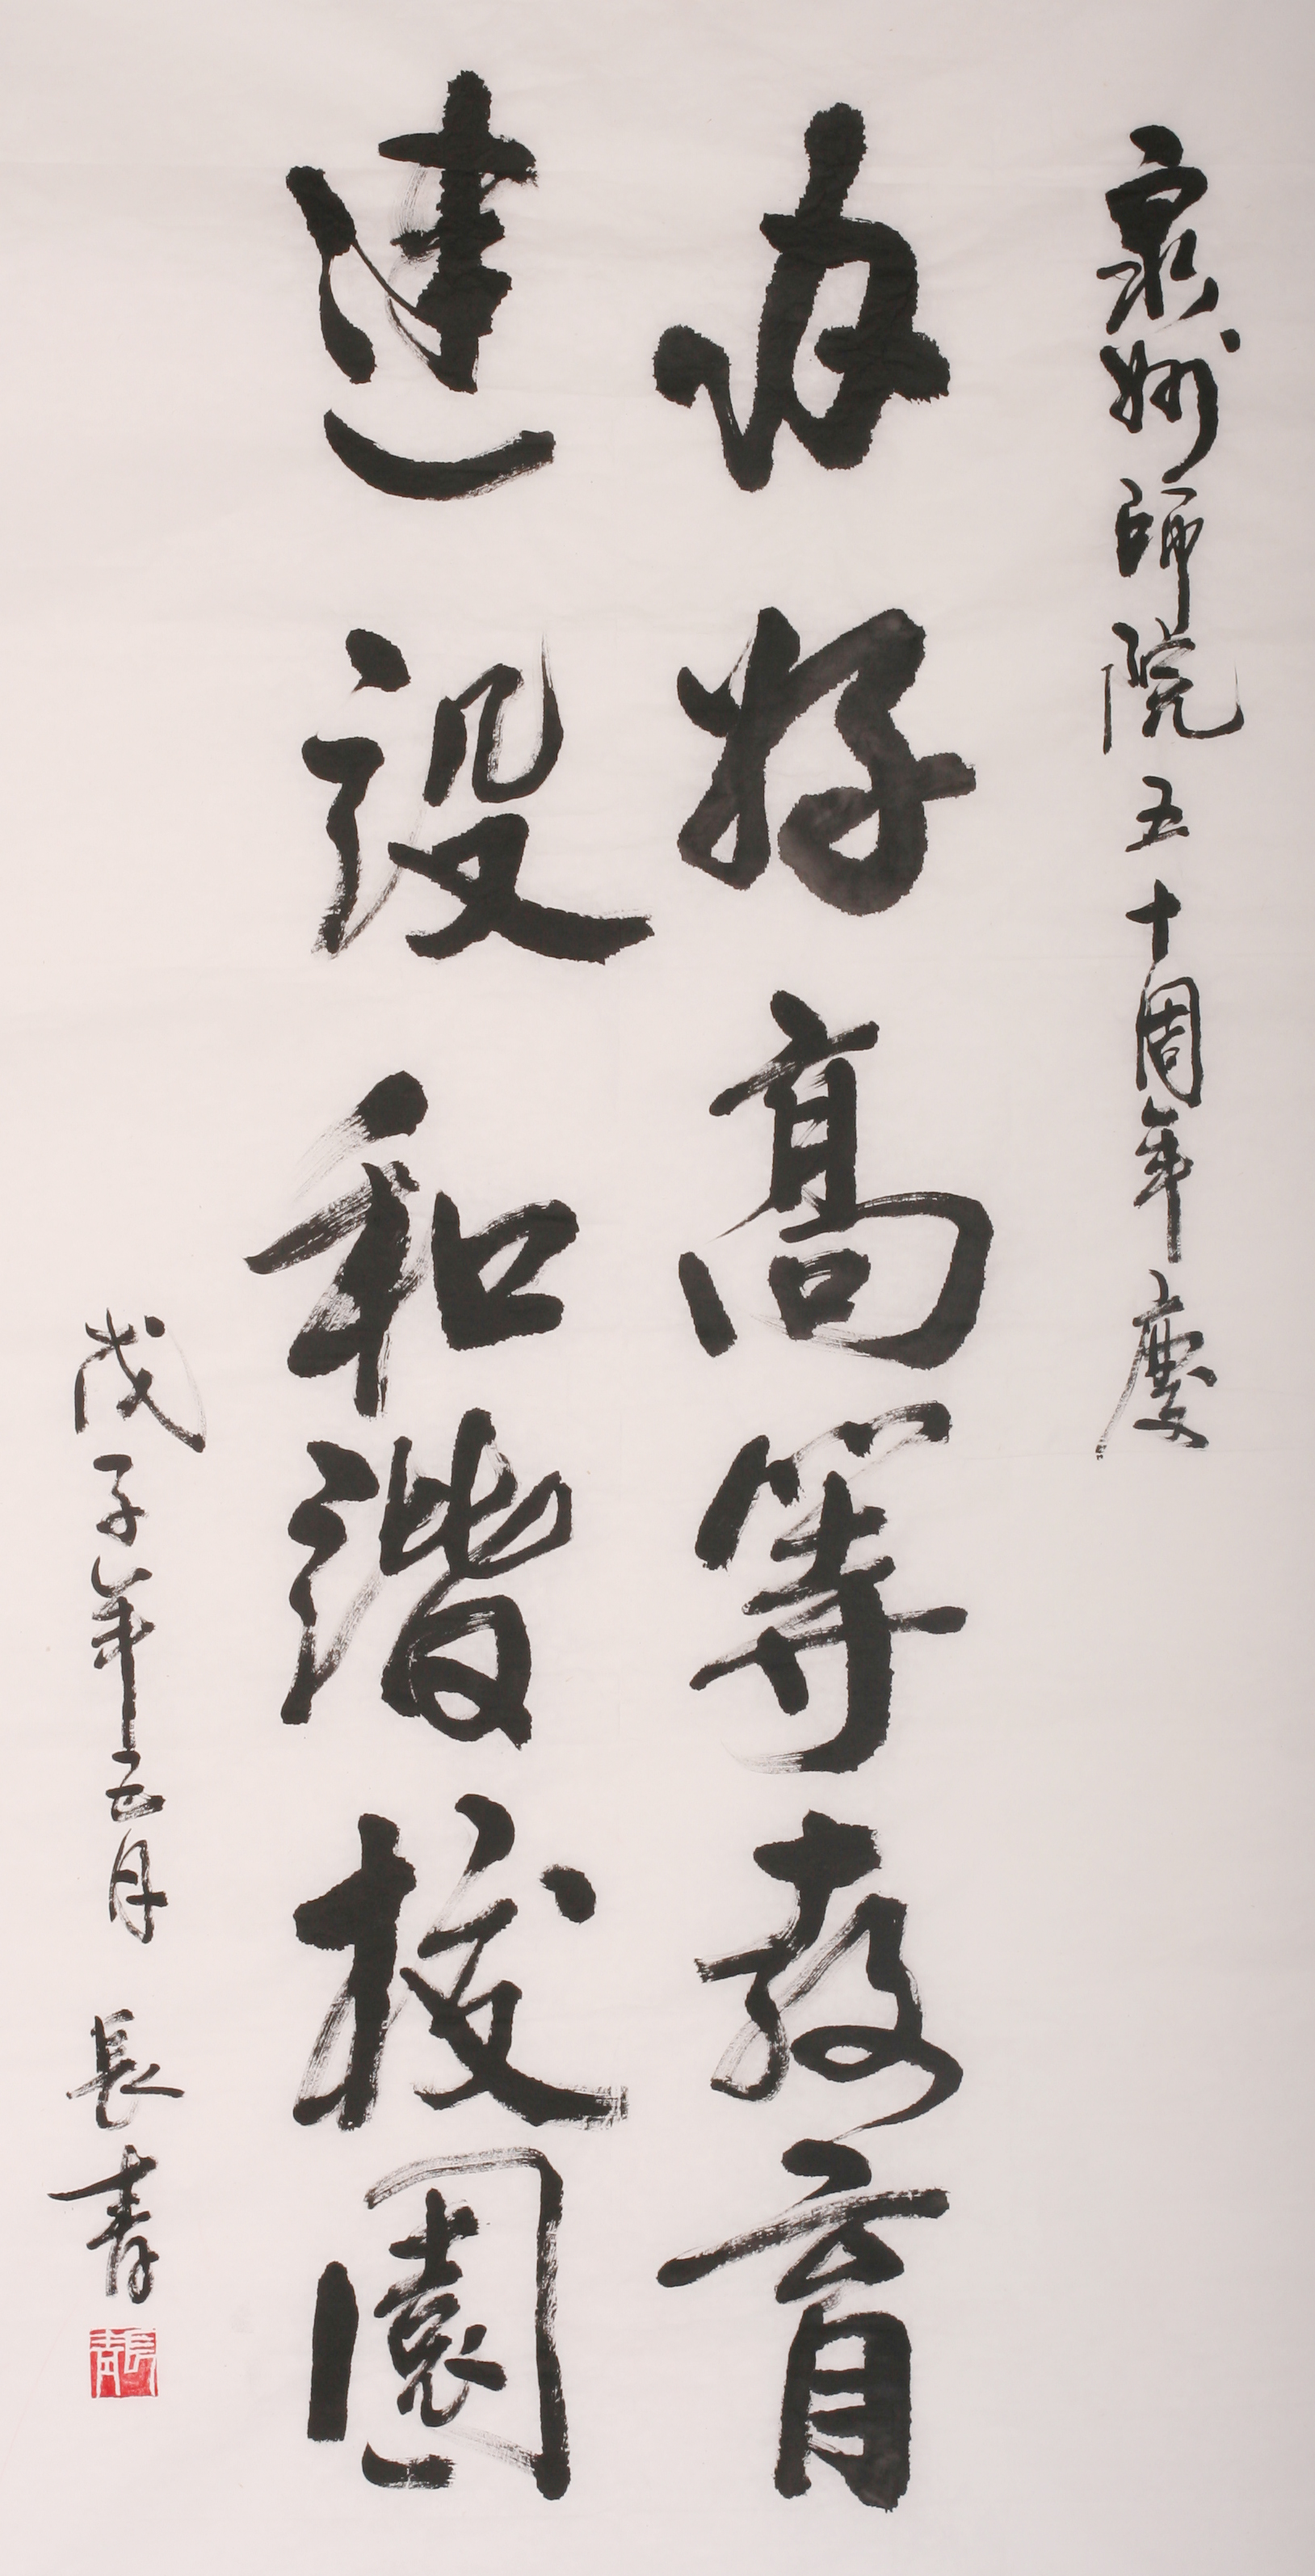 泉州師院五十周年慶
办好高等教育
建设和谐校園
戊子年五月 長青
長青